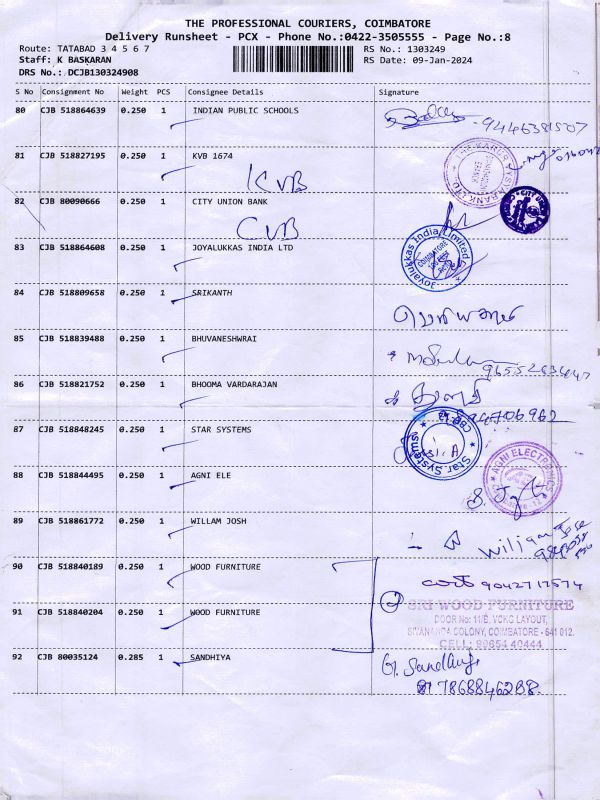 THE PROFESSIONAL COURIERS, COIMBATORE
Delivery Runsheet - PCX - Phone No.:0422-3505555 - Page No.:8
Route: TATABAD 3 4 5 6 7
RS No.: 1303249
Staff: K BASKARAN
RS Date: 09-Jan-2024
DRS No.: DCJB130324908
S No Consignment No Weight PCS Consignee Details Signature
80 CJB 518864639 0.250 1 INDIAN PUBLIC SCHOOLS
9446381507
81 CJB 518827195 0.250 1 KVB 1674
KVB
82 CJB 80090666 0.250 1 CITY UNION BANK
CUB
83 CJB 518864608 0.250 1 JOYALUKKAS INDIA LTD
Joyalukkas India Limited
COIMBATORE
84 CJB 518809658 0.250 1 SRIKANTH
85 CJB 518839488 0.250 1 BHUVANESHWRAI
86 CJB 518821752 0.250 1 BHOOMA VARDARAJAN
87 CJB 518848245 0.250 1 STAR SYSTEMS
Star Systems
88 CJB 518844495 0.250 1 AGNI ELE
AGNI ELECTRONICS
89 CJB 518861772 0.250 1 WILLAM JOSH
90 CJB 518840189 0.250 1 WOOD FURNITURE
9042717574
91 CJB 518840204 0.250 1 WOOD FURNITURE
SRI WOOD FURNITURE
DOOR No: 11/B, VCKG LAYOUT,
SIVANANDA COLONY, COIMBATORE - 641 012.
CELL: 90654 40444
92 CJB 80035124 0.285 1 SANDHIYA
7868846288.